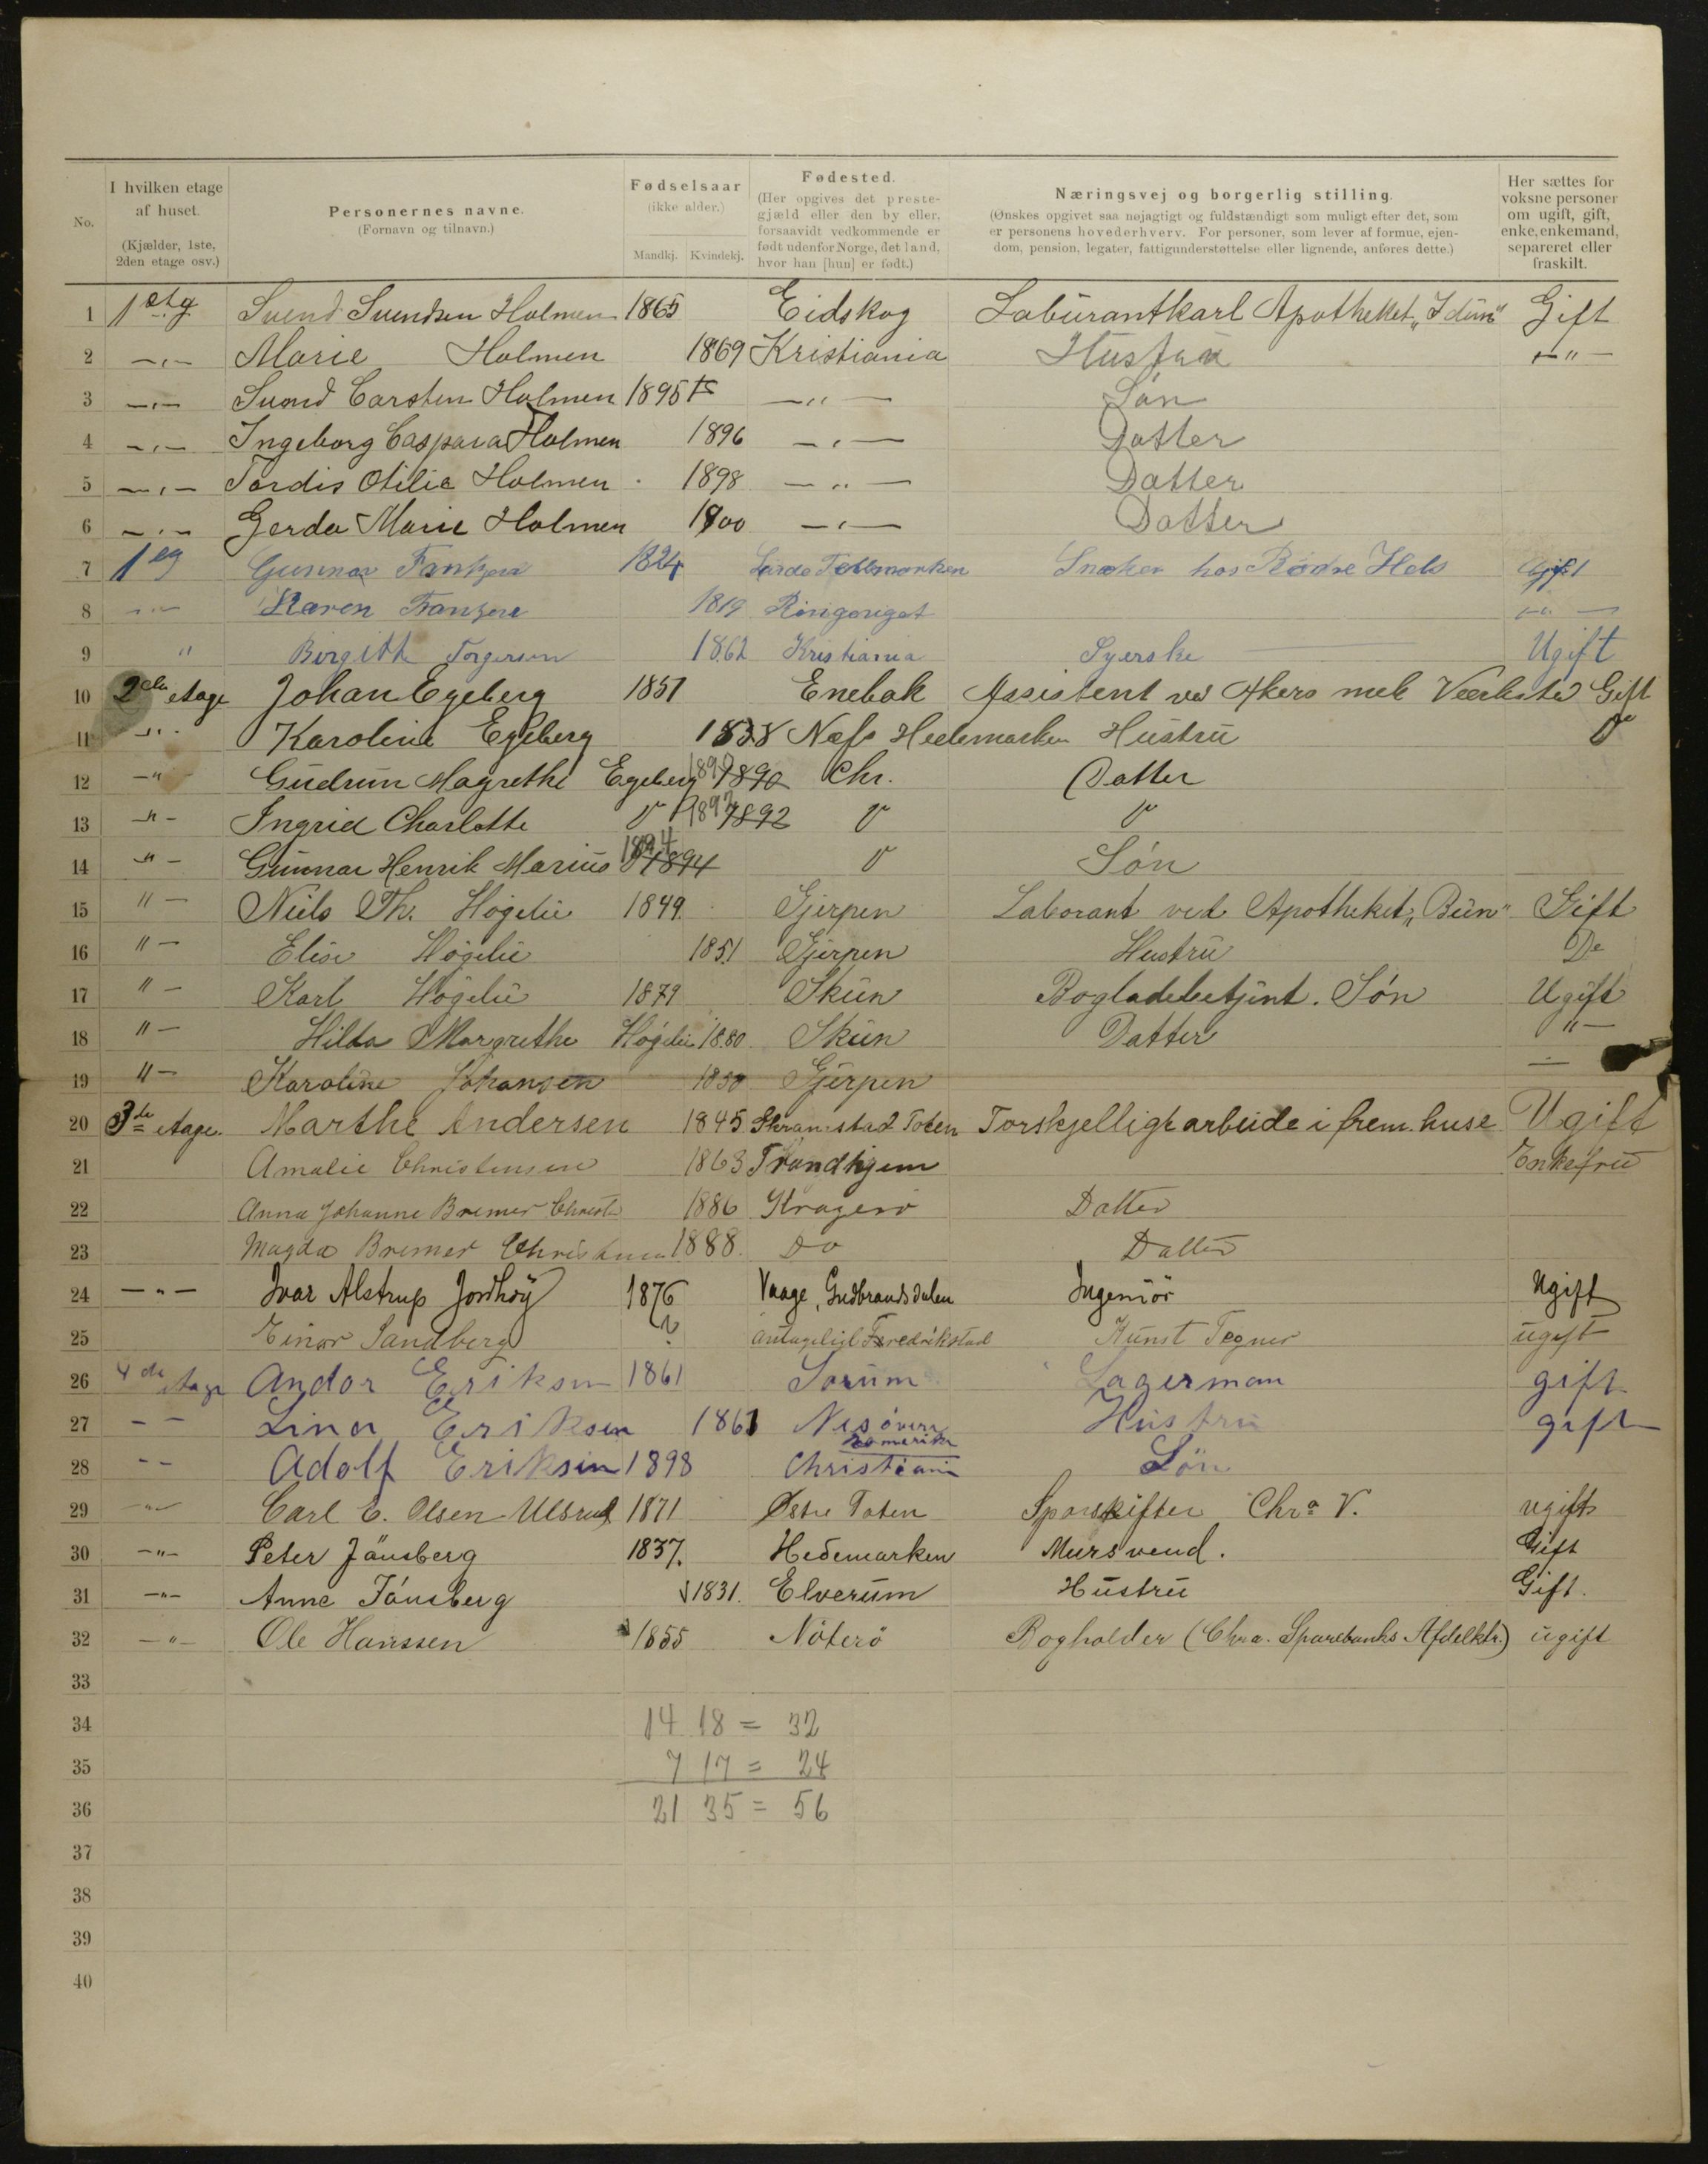 No.
I hvilken etage af huset. (Kjælder, 1ste, 2den etage osv.)
Personernes navne. (Fornavn og tilnavn.)
Fødselsaar (ikke alder.) Mandkj. Kvindekj.
Fødested. (Her opgives det prestegjæld eller den by eller, forsaavidt vedkommende er født udenfor Norge, det land, hvor han [hun] er født.)
Næringsvej og borgerlig stilling. (Ønskes opgivet saa nøjagtigt og fuldstændigt som muligt efter det, som er personens hovederhverv. For personer, som lever af formue, ejendom, pension, legater, fattigunderstøttelse eller lignende, anføres dette.)
Her sættes for voksne personer om ugift, gift, enke, enkemand, separeret eller fraskilt.
1 1 etg Svend Svendsen Holmen 1865 Eidskog Laburantkarl Apotheket „Idun" Gift
2 —„— Marie Holmen 1869 Kristiania Hustru —„—
3 —„— Svend Carsten Holmen 1895 —„— Søn
4 —„— Ingeborg Caspara Holmen 1896 —„— Datter
5 —„— Tordis Otilie Holmen 1898 —„— Datter
6 —„— Gerda Marie Holmen 1900 —„— Datter
7 1 eg Gunnar 1824 Tellemarken Snæker hos Gift
8 —„— Karen 1819 —„—
9 " Birgith Torgersen 1862 Kristiania Syerske Ugift
10 2den etage Johan Egeberg 1851 Enebak Assistent ved Akers mek Værksted Gift
11 —"— Karoline Egeberg Næs Hedemarken Hustru Do
12 —"— Gudrun Magrethe Egeberg 1890 1890 Chr. Datter
13 —"— Ingrid Charlotte Do 1892 1892 Do Do
14 "— Gunnar Henrik Marius Do 1894 1894 Do Søn
15 "— Niels Th. Høgelie 1849 Gjerpen Laborant ved Apotheket Gift
16 "— Elise Høgelie 1851 Gjerpen Hustru Do
17 "— Karl Høgelie 1879 Skien Bogladebetjent. Søn Ugift
18 "— Hilda Margrethe Høgelie 1880 Skien Datter "—
19 "— Karoline Johansen 1850 Gjerpen —
20 3de etage. Marthe Andersen 1845 Toten Forskjelligt arbeide i frem. huse Ugift
21 Amalie Christensen 1863 Trondhjem Enkefru
22 Anna Johanne Bremer Christ 1886 Kragerø Datter
23 Magda Bremer Christensen 1888. Do Datter
24 —"— Ivar Alstrup Jordhøy 1876 Vaage, Gudbrandsdalen Ingeniör Ugift
25 Einar Sandberg ? antageligt Fredrikstad Kunst Tegner ugift
26 4de etage Andor Eriksen 1861 Sørum Lagerman gift
27 — — Lina Eriksen 1861 Nes øvere Romerike Hustru gift
28 — — Adolf Eriksen 1898 Christiania Sön
29 —"— Carl E. Olsen Ulsrud 1871 Østre Toten Sporskifter Chra V. ugift
30 —"— Peter Jönsberg 1837. Hedemarken Mursvend. Gift
31 —"— Anne Jönsberg 1831. Elverum Hustru Gift.
32 —"— Ole Hanssen 1855 Nöterö Bogholder (Chra. Sparebanks Afdelktr.) ugift
33
34 14 18 = 32
35 7 17 = 24
36 21 35 = 56
37
38
39
40